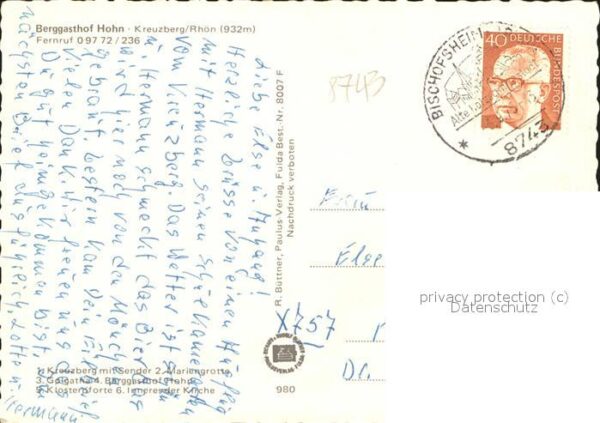 Berggasthof Hohn · Kreuzberg/Rhön (932m)
Fernruf 0 97 72 / 236
8743
BISCHOFSHEIM
8743
40 DEUTSCHE
BUNDESPOST
Liebe Else u. Anhang!
Herzliche Grüsse von einem Ausflug
mit Hermann seinen
vom Kreuzberg. Das Wetter ist schön
u. Hermann schmeckt das Bier das
wird hier noch von den Mönchen
gebraut. Gestern kam Dein
Vielen Dank. Wir freuen uns das
Du gut heimgekommen bist. Im
nächsten Brief ausführlich. Lotte u.
Hermann.
R. Büttner, Paulus Verlag, Fulda Best. Nr. 8007 F
Nachdruck verboten
Frau
Else
X757
privacy protection (c)
Datenschutz
1. Kreuzberg mit Sender 2. Mariengrotte
3. Golgatha 4. Berggasthof Hohn
5. Klosterpforte 6. Inneres der Kirche
980